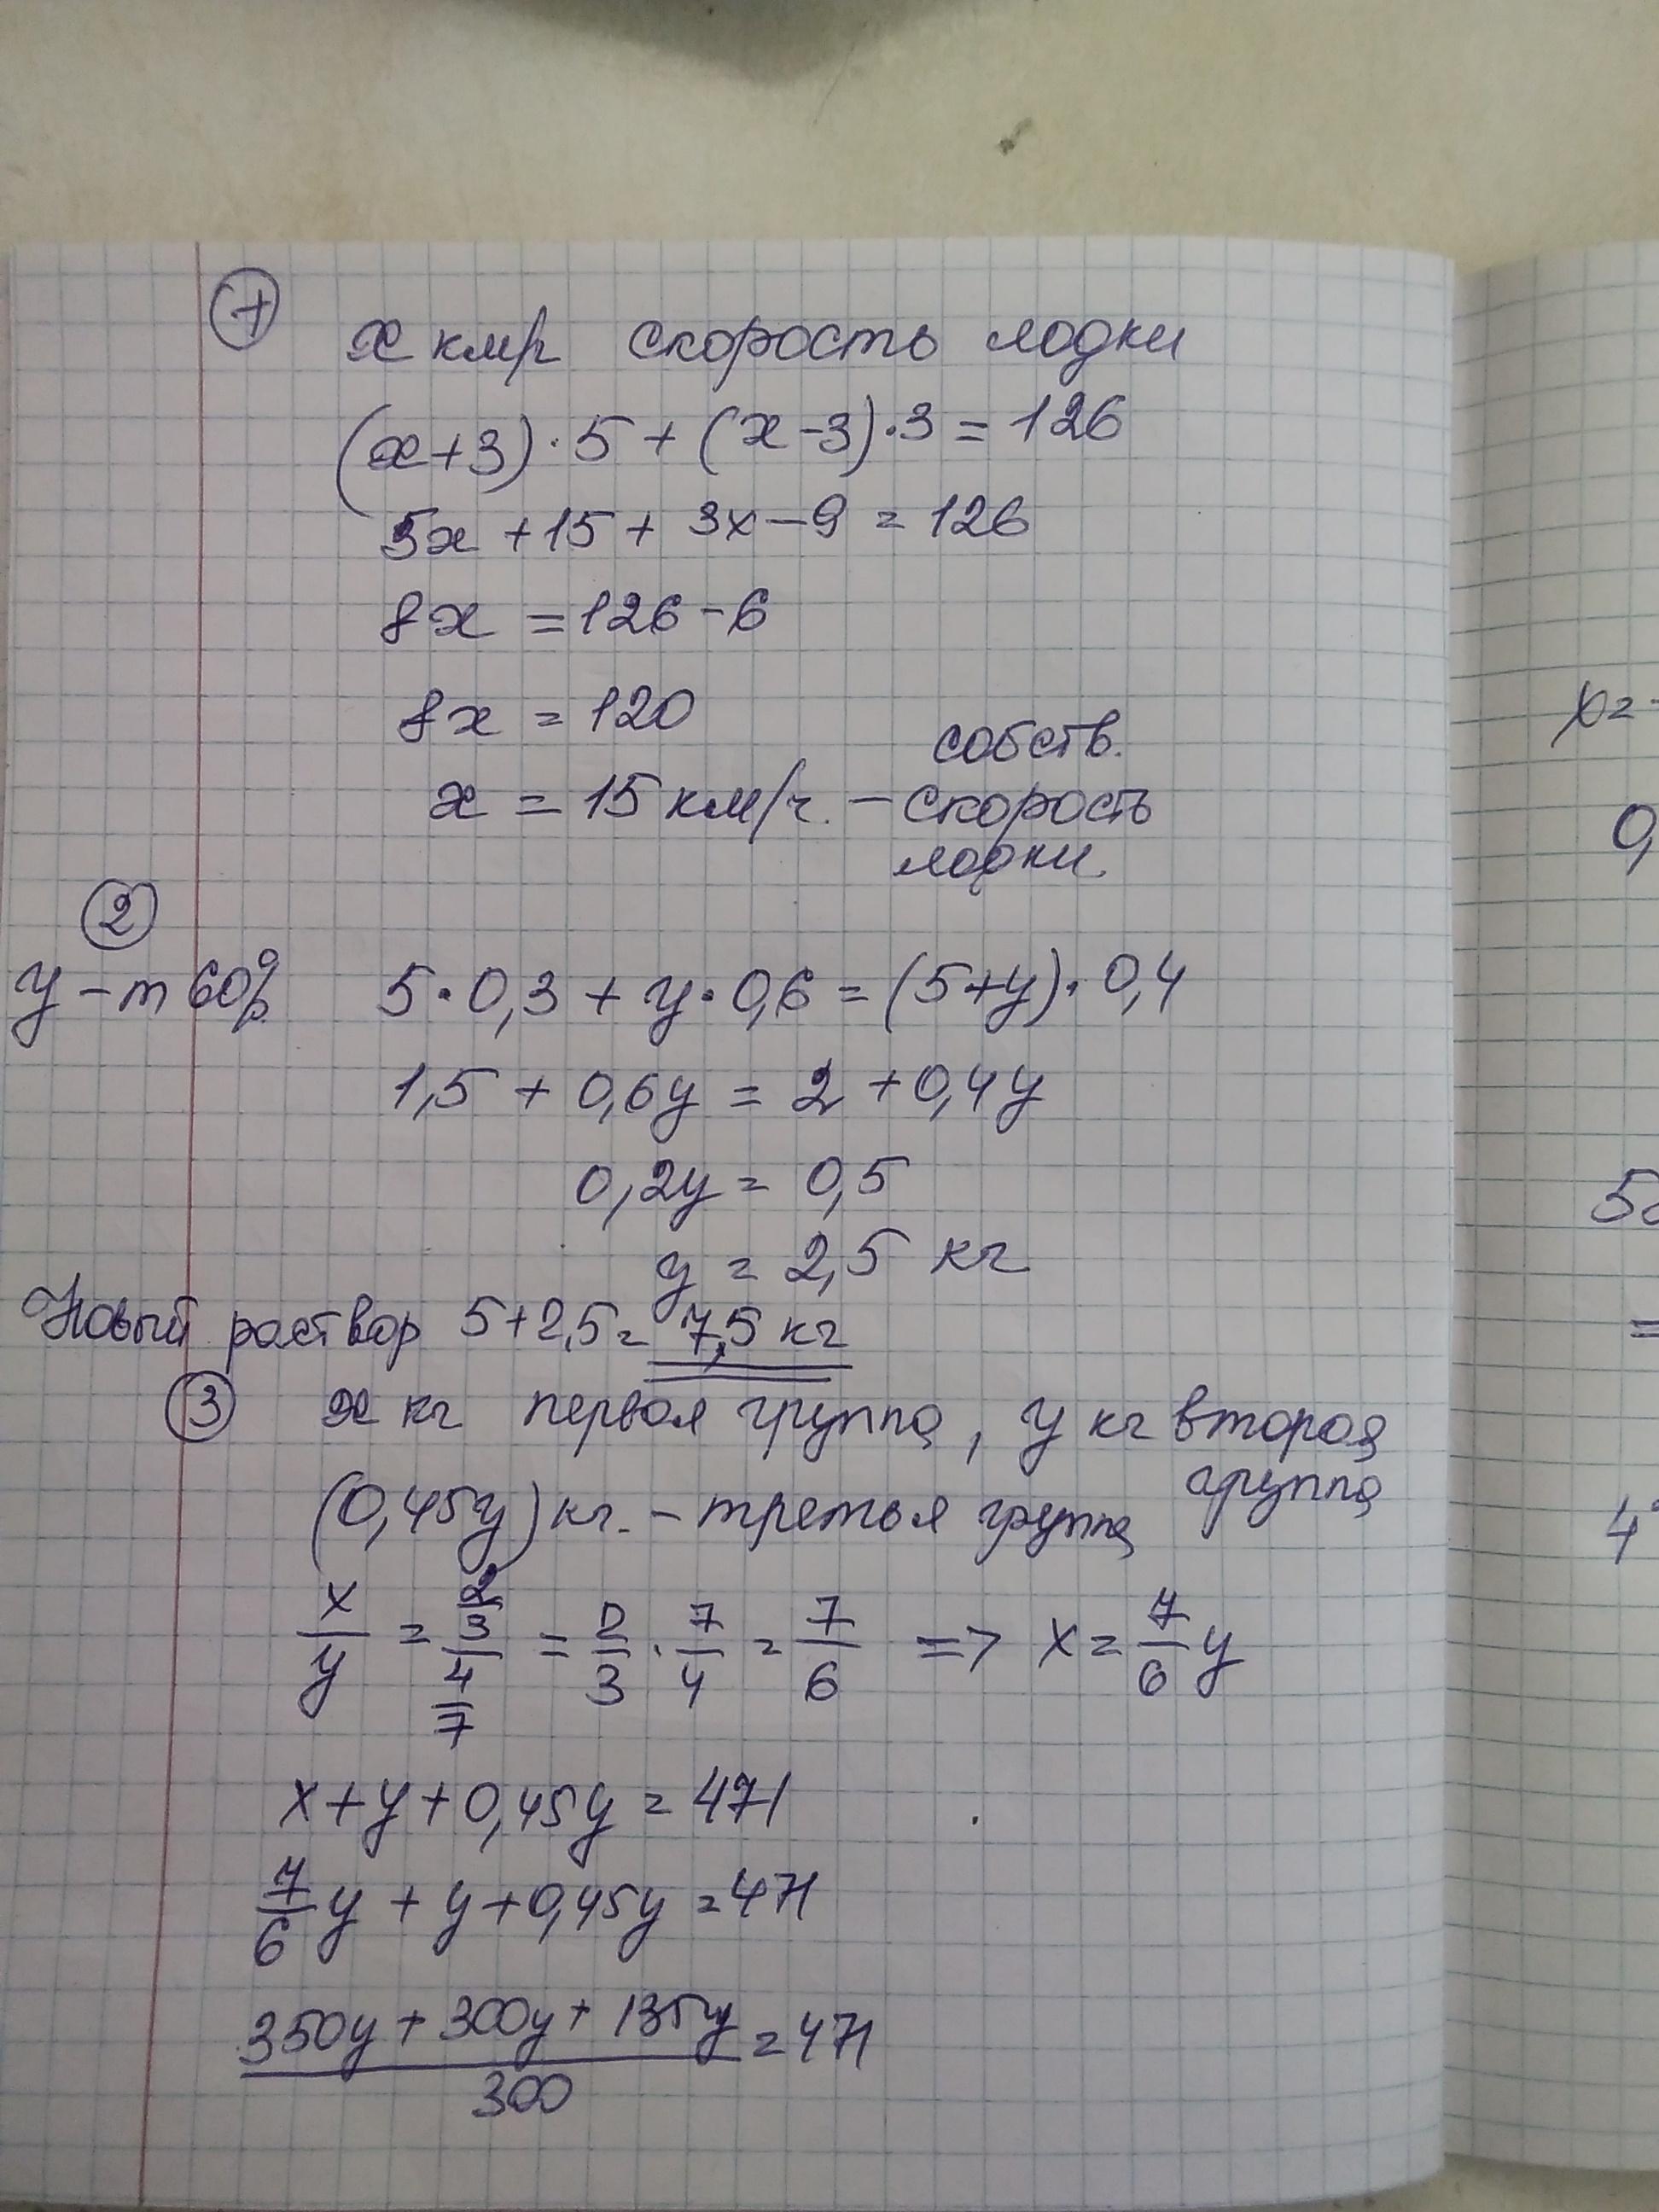 ①
x км/ч скорость лодки
(x+3)·5+(x-3)·3=126
5x+15+3x-9=126
8x=126-6
8x=120
x=15 км/ч. – собств.
скорость
лодки.
②
y – m 60% 5·0,3+y·0,6=(5+y)·0,4
1,5+0,6y=2+0,4y
0,2y=0,5
y=2,5 кг
Новый раствор 5+2,5= 7,5 кг
③ x кг первая группа, y кг вторая
группа
(0,45y) кг. – третья группа
x/y = (2/3)/(4/7) = 2/3 · 7/4 = 7/6 => x = 7/6 y
x+y+0,45y=471
7/6 y+y+0,45y=471
(350y+300y+135y)/300=471
x=
0,
5
=
4